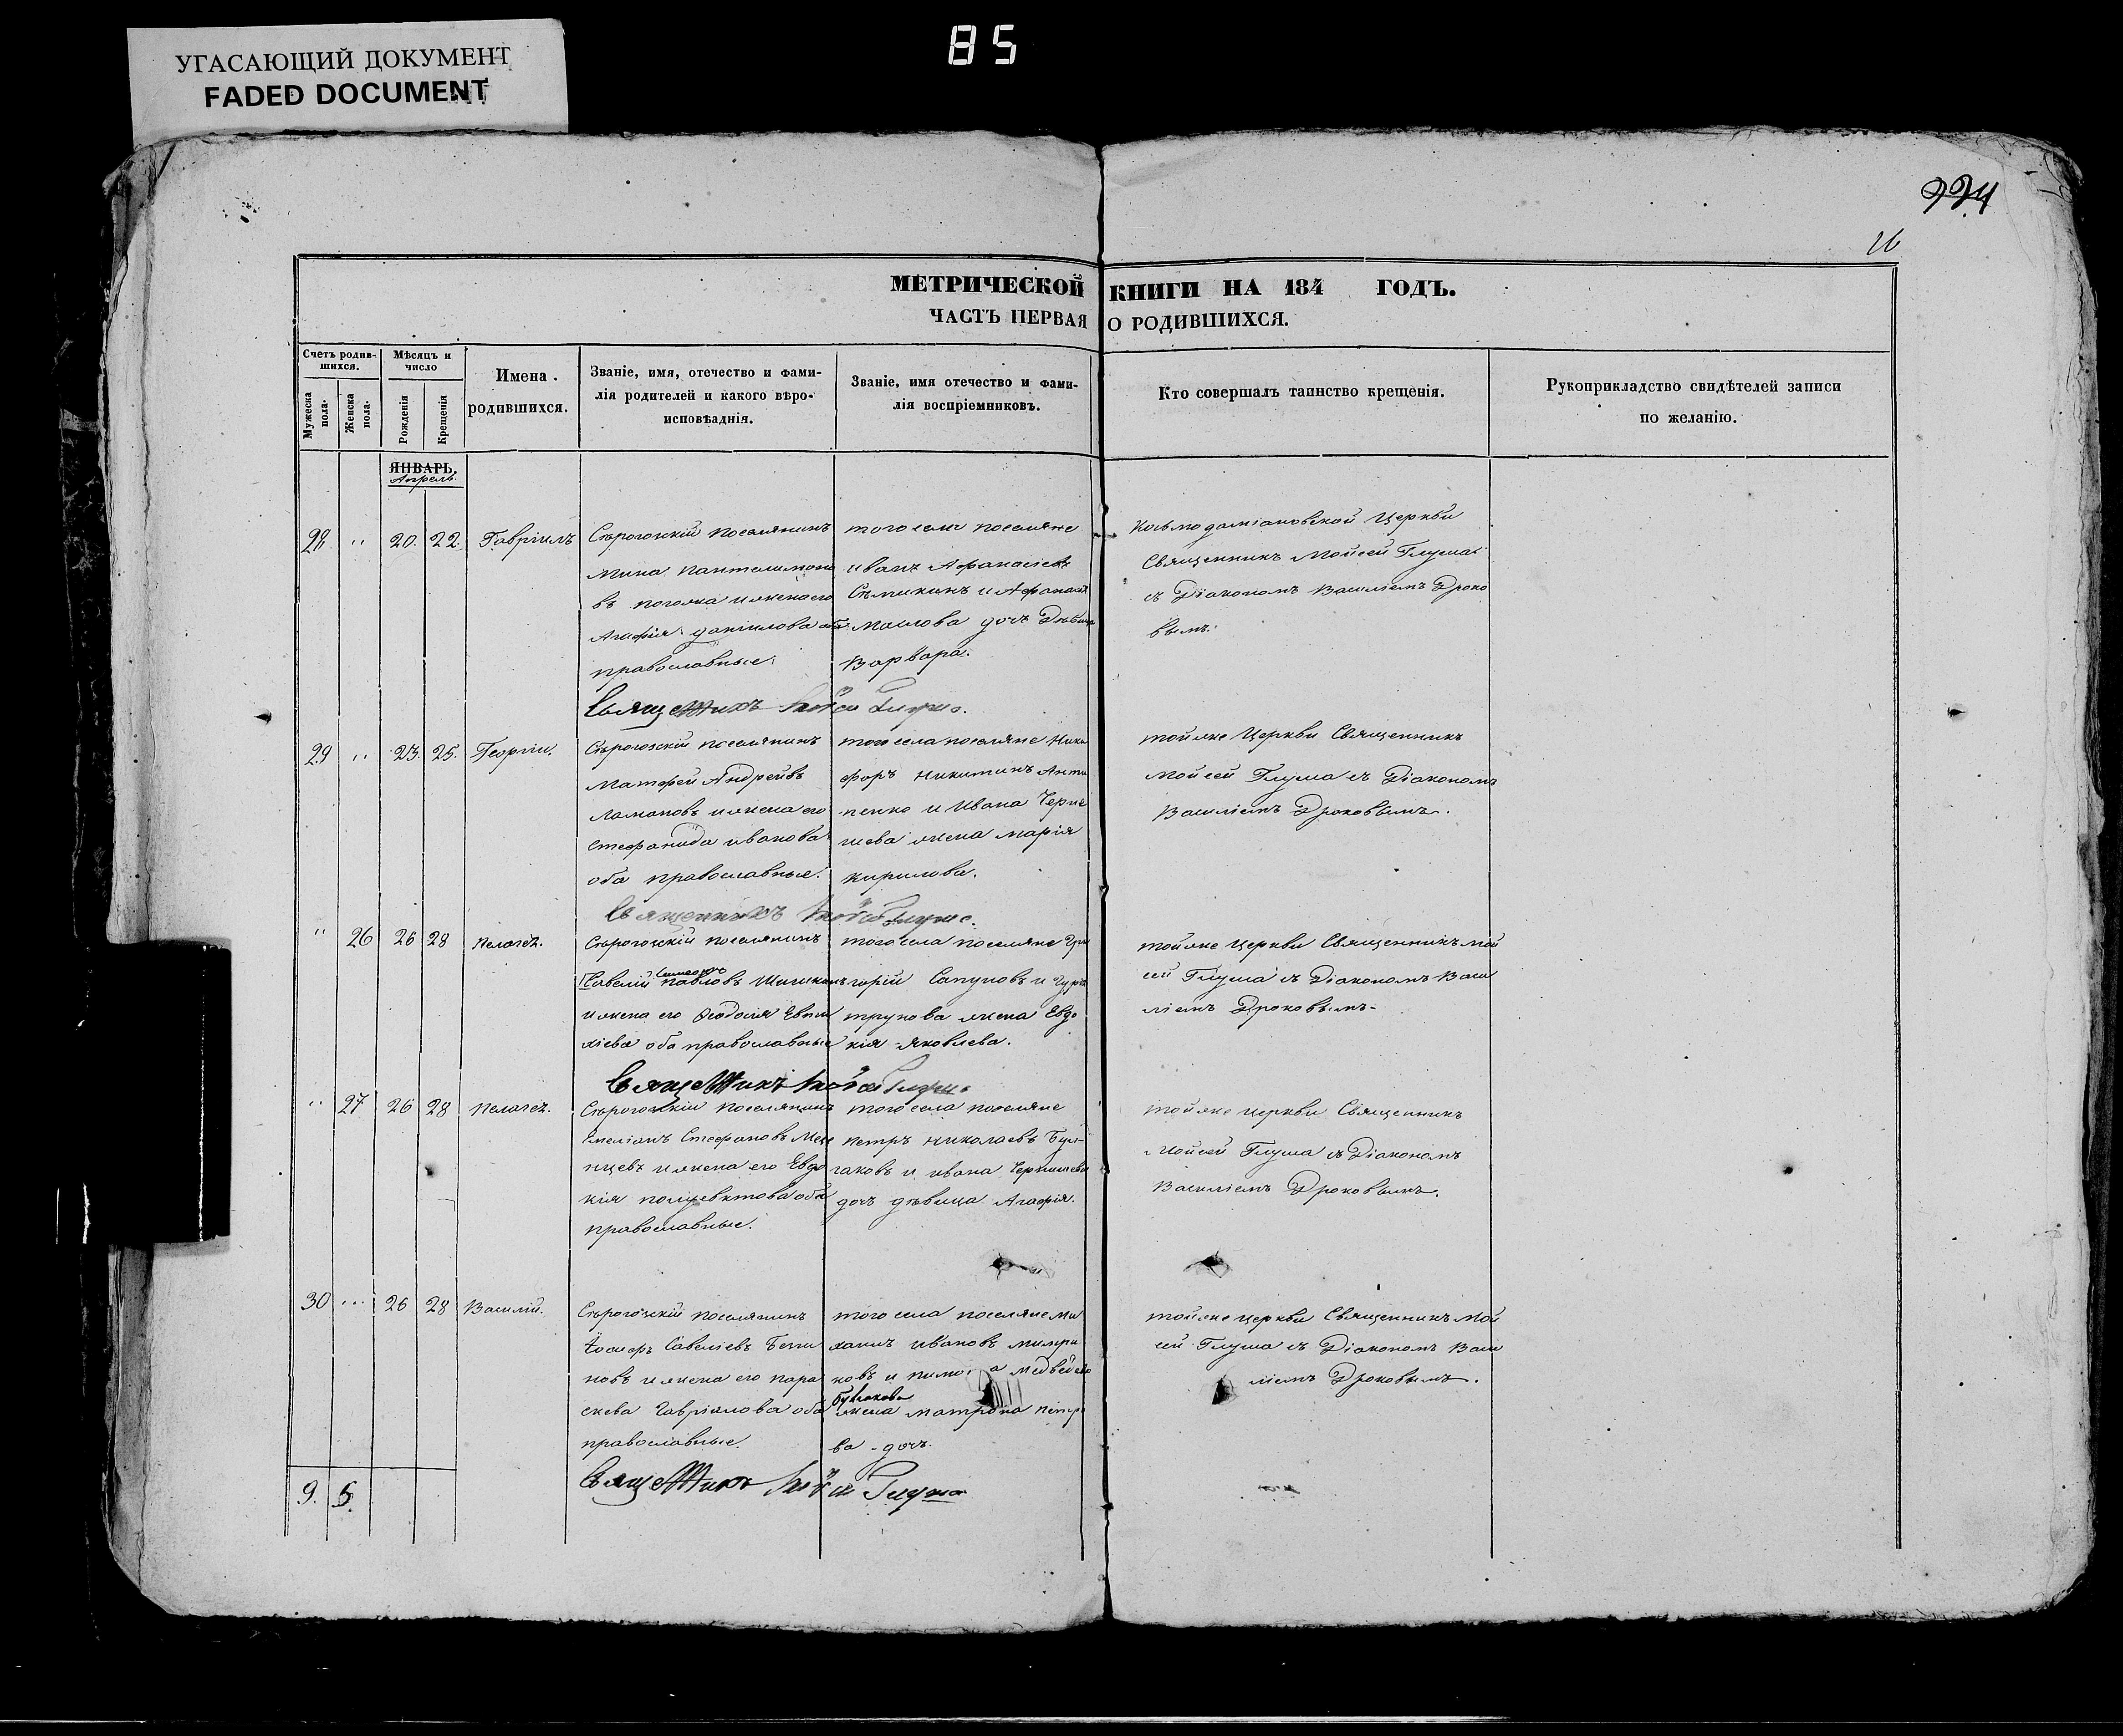 85
УГАСАЮЩИЙ ДОКУМЕНТ
FADED DOCUMENT
224
16
МЕТРИЧЕСКОЙ КНИГИ НА 184 ГОДЪ.
ЧАСТЬ ПЕРВАЯ О РОДИВШИХСЯ.
Счетъ родив-
шихся.
Мужеска
пола.
Женска
пола.
Мѣсяцъ и
число
Рожденія
Крещенія
Имена
родившихся.
Званіе, имя, отечество и фами-
лія родителей и какого вѣро-
исповѣаднія.
Званіе, имя отечество и фами-
лія воспріемниковъ.
Кто совершалъ таинство крещенія.
Рукоприкладство свидѣтелей записи
по желанію.
ЯНВАРЬ.
Апрель.
28 " 20. 22. Гавріилъ
Сѣрогозскій поселянинъ
Мина Пантелимоно
въ и жена его
Агафія Данилова оба
православные.
того села поселяне
Иванъ Афанасіевъ
и Афанасія
Маслова дочъ Дѣвица
Варвара.
Космодаміановской Церкви
Священникъ Мойсей Глума
съ Діакономъ Василіемъ Дроко
вымъ.
Священникъ Мойсей Глума.
29 " 23. 25. Георгій.
Сѣрогозскій поселянинъ
Матфей Андреевъ
Ламановъ и жена его
Стефанида Иванова
оба православные.
того села поселяне Ники
форъ Никитинъ Анти
пенко и Ивана Черне
шева жена Марія
Кирилова.
тойже Церкви Священникъ
Мойсей Глума съ Діакономъ
Василіемъ Дроковымъ.
Священникъ Мойсей Глума.
" 26 26 28 Пелагея.
Сѣрогозскій поселянинъ
Савелій Павловъ Шишкинъ
и жена его Феодосія Евти
хіева оба православные
того села поселяне Гри
горій Сапуновъ и
трунова жена Евдо
кія Яковлева.
тойже Церкви Священникъ Мой
сей Глума съ Діакономъ Васи
ліемъ Дроковымъ.
Священникъ Мойсей Глума.
" 27 26 28 Пелагея.
Сѣрогозскій поселянинъ
Емеліанъ Стефановъ
и жена его Евдо
кія оба
православные.
того села поселяне
Петръ Николаевъ Бул-
гаковъ и Ивана Чернишева
дочъ дѣвица Агафія.
тойже церкви Священникъ
Мойсей Глума съ Діакономъ
Василіемъ Дроковымъ.
30 " 26 28 Василій.
Сѣрогозскій поселянинъ
Іосифъ Савеліевъ
новъ и жена его Пара
скева Гавріилова оба
православные.
того села поселяне Ми
хаилъ Ивановъ
ковъ и Медведева
Булгакова
жена Матрона Петро
ва дочъ.
тойже церкви Священникъ Мой
сей Глума съ Діакономъ Васи
ліемъ Дроковымъ.
Священникъ Мойсей Глума
9. 5.